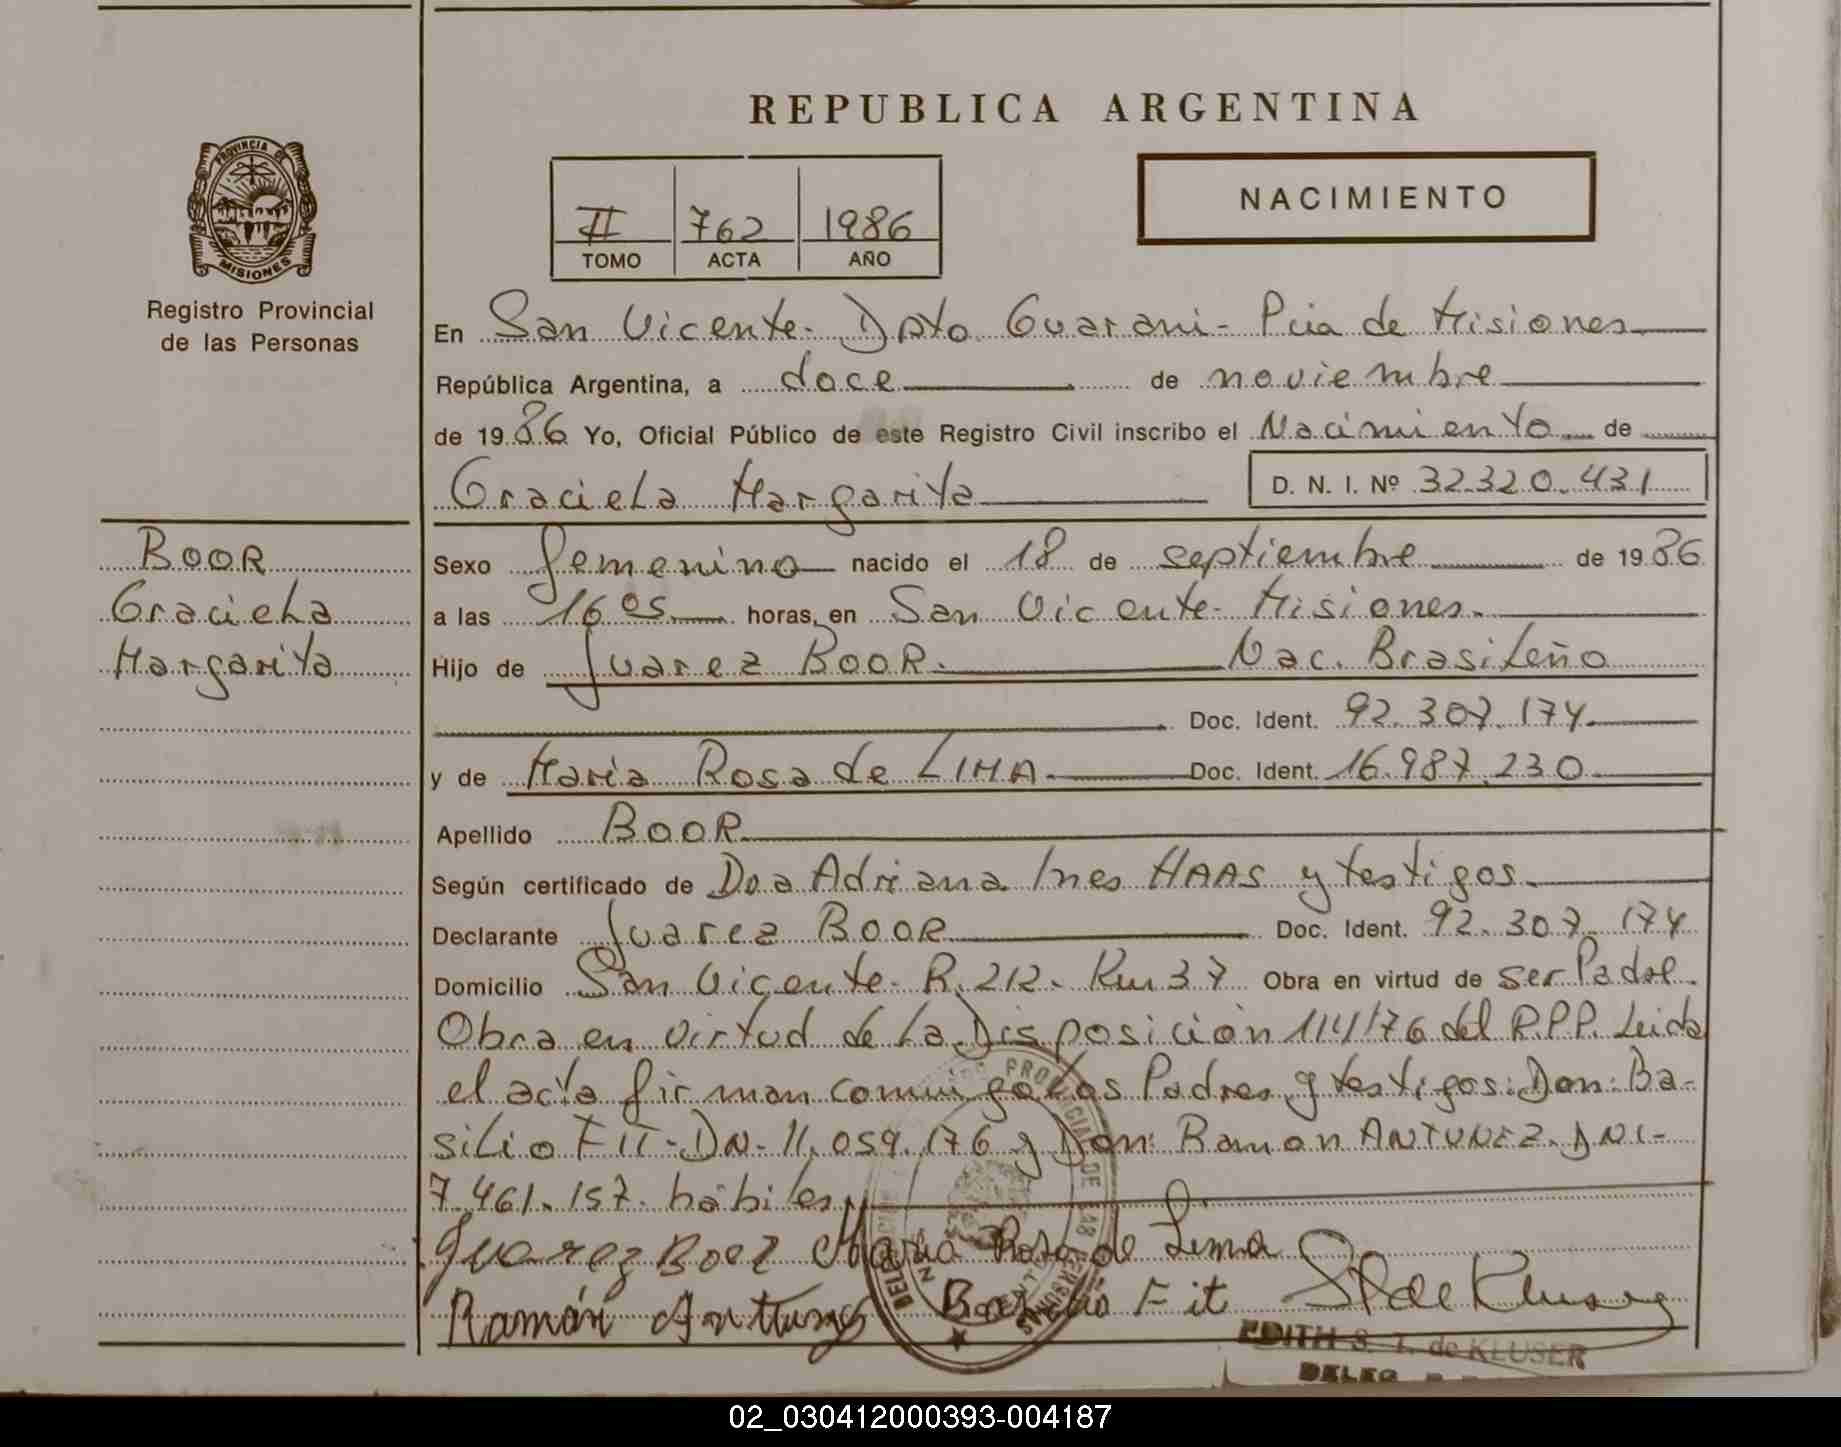 REPUBLICA ARGENTINA
PROVINCIA DE
MISIONES
Registro Provincial
de las Personas
II 762 1986
TOMO ACTA AÑO
NACIMIENTO
En San Vicente - Dpto Guarani - Pcia de Misiones
República Argentina, a doce de noviembre
de 1986 Yo, Oficial Público de este Registro Civil inscribo el Nacimiento de
Graciela Margarita D. N. I. Nº 32320.431
BOOR
Graciela
Margarita
Sexo femenino nacido el 18 de septiembre de 1986
a las 16 05 horas, en San Vicente - Misiones.
Hijo de Juarez BOOR. Nac. Brasileño
Doc. Ident. 92.307.174
y de Maria Rosa de LIMA Doc. Ident. 16.987.230
Apellido BOOR
Según certificado de Dra Adriana Ines HAAS y testigos.
Declarante Juarez BOOR Doc. Ident. 92.307.174
Domicilio San Vicente - R. 212 - Km 37 Obra en virtud de ser Padre.
Obra en virtud de la Disposición 114/76 del R.P.P. Leida
el acta firman conmigo los Padres y testigos: Don: Ba-
silio FIT - DN - 11.059.176 y Don: Ramon ANTUNEZ. DNI-
7.461.157. hábiles
Juarez Boor Maria Rosa de Lima
Ramón Antunes Basilio Fit S T de Kluser
EDITH S. T. de KLUSER
DELEG.
02_030412000393-004187